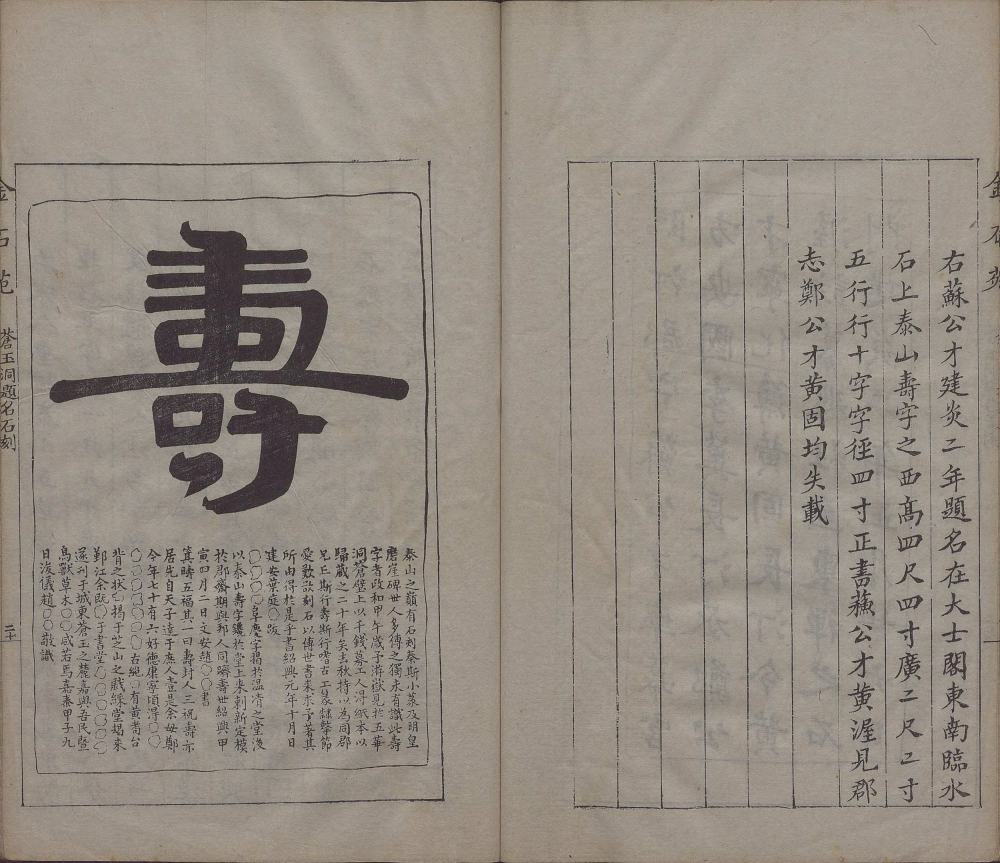 右蘇公才建炎二年題名在大士閣東南臨水
石上泰山壽字之西高四尺四寸廣二尺二寸
五行行十字字徑四寸正書蘓公才黃渥見郡
志鄭公才黃固均失載
金石苑
蒼玉洞題名石刻
壽
泰山之嶺有石刻秦斯小篆及明皇
磨崖碑世人多傳之獨未有識此壽
字者政和甲午歲予游嶽見於五華
洞蒼壁上以千錢募工人得紙本以
歸藏之二十年矣去秋持以為同郡
兄丘斯行壽斯行嗜古工篆隸擊節
愛歎欲刻石以傳世書來求予著其
所由得於是乎書紹興元年十月日
建安葉庭○跋
○○○○阜慶字揭於溫清之堂後
以泰山壽字鑱於堂上來剌新定模
於郡齋期與邦人同躋壽世紹興甲
寅四月二日文安趙○○書
箕疇五福其一曰壽封人三祝壽亦
居先自天子達于庶人壹是余母鄭
今年七十有六好德康寧頃得○○
○○○○○古絕○有黃耇台
背之狀○揭于芝山之戲綵堂揭來
鄞江余既○于書堂○○○○○○
遂刋于城東蒼玉之麓嘉與吾民暨
鳥獸草木○○咸若焉嘉泰甲子九
日浚儀趙○○敬識
二十